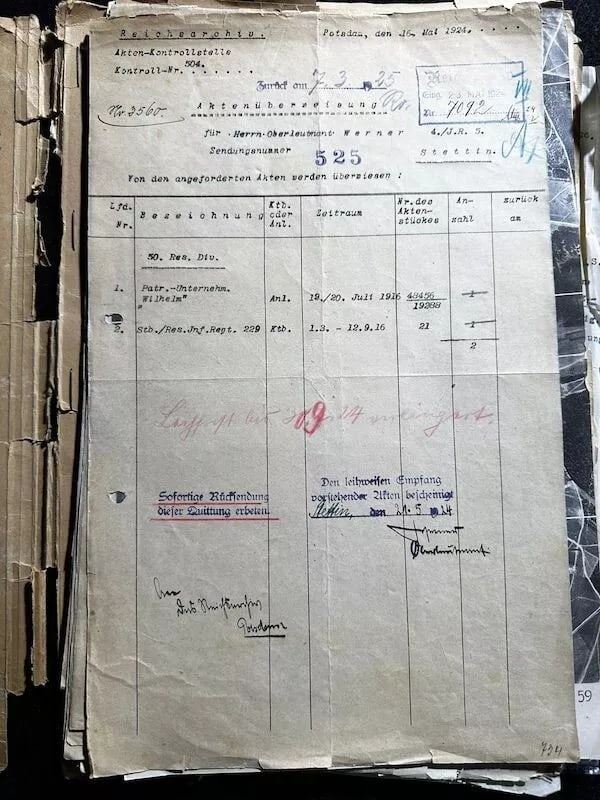 Reichsarchiv. Potsdam, den 16. Mai 1924.
Akten-Kontrollstelle
Kontroll-Nr. 504.
Zurück am 7. 3. 1925
Nr. 3560.
Aktenüberweisung
Eing. 23. MAI. 1924
7092
für Herrn Oberleutnant Werner 4./J.R. 5.
Sendungsnummer 525 Stettin.
Von den angeforderten Akten werden überwiesen :
Lfd. Nr. Bezeichnung Ktb. oder Anl. Zeitraum Nr. des Akten- stückes An- zahl zurück am
50. Res. Div.
1. Patr.-Unternehm.
"Wilhelm" Anl. 19./20. Juli 1916 48456 1
19288
2. Stb./Res.Jnf.Regt. 229 Ktb. 1.3. - 12.9.16 21 1
2
Leihfrist bis 9. 24 verlängert.
Sofortige Rücksendung
dieser Quittung erbeten.
Den leihweisen Empfang
vorstehender Akten bescheinigt
Stettin, den 21. 5 1924
Oberleutnant
An
Das Reichsarchiv
Potsdam
59